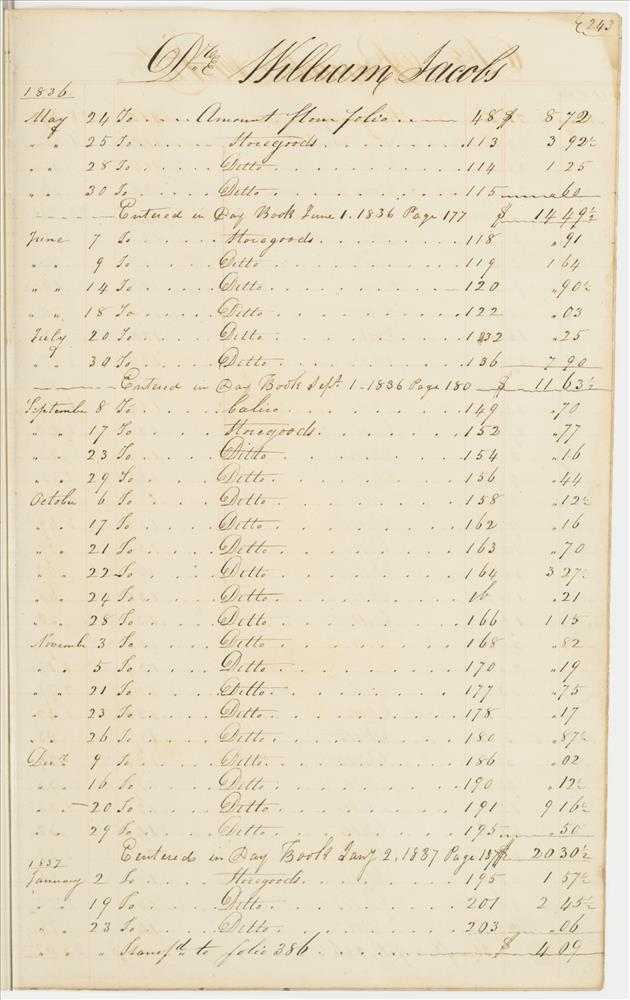 243
Dr. William Jacobs
1836
May 24 To .... Amount from folio ..... 48 $ 8 72
" " 25 To ..... Storegoods ....... 113 3 92½
" " 28 To ..... Ditto ....... 114 1 25
" " 30 To ..... Ditto ....... 115 " 60
Entered in Day Book June 1. 1836 Page 177 $ 14 49½
June 7 To ..... Storegoods ....... 118 " 91
" " 9 To ..... Ditto ....... 119 1 64
" " 14 To ..... Ditto ....... 120 " 90½
" " 18 To ..... Ditto ....... 122 " 03
July 20 To ..... Ditto ....... 132 " 25
" " 30 To ..... Ditto ....... 136 7 90
Entered in Day Book Sept. 1 - 1836 Page 180 $ 11 63½
September 8 To ..... Calico ....... 149 " 70
" " 17 To ..... Storegoods ....... 152 " 77
" " 23 To ..... Ditto ....... 154 " 16
" " 29 To ..... Ditto ....... 156 " 44
October 6 To ..... Ditto ....... 158 " 12½
" " 17 To ..... Ditto ....... 162 " 16
" " 21 To ..... Ditto ....... 163 " 70
" " 22 To ..... Ditto ....... 164 3 27½
" " 24 To ..... Ditto ....... 16 " 21
" " 28 To ..... Ditto ....... 166 1 15
November 3 To ..... Ditto ....... 168 " 82
" " 5 To ..... Ditto ....... 170 " 19
" " 21 To ..... Ditto ....... 177 " 75
" " 23 To ..... Ditto ....... 178 " 17
" " 26 To ..... Ditto ....... 180 " 87½
Decr. 9 To ..... Ditto ....... 186 " 02
" " 16 To ..... Ditto ....... 190 " 12½
" " 20 To ..... Ditto ....... 191 9 16½
" " 29 To ..... Ditto ....... 195 " 50
Eentered in Day Book Jany 2, 1837 Page $ 20 30½
1837
January 2 To ..... Storegoods ....... 195 1 57½
" " 19 To ..... Ditto ....... 201 2 45½
" " 23 To ..... Ditto ....... 203 " 06
" " " Transfd. to folio 386 ....... $ 4 09